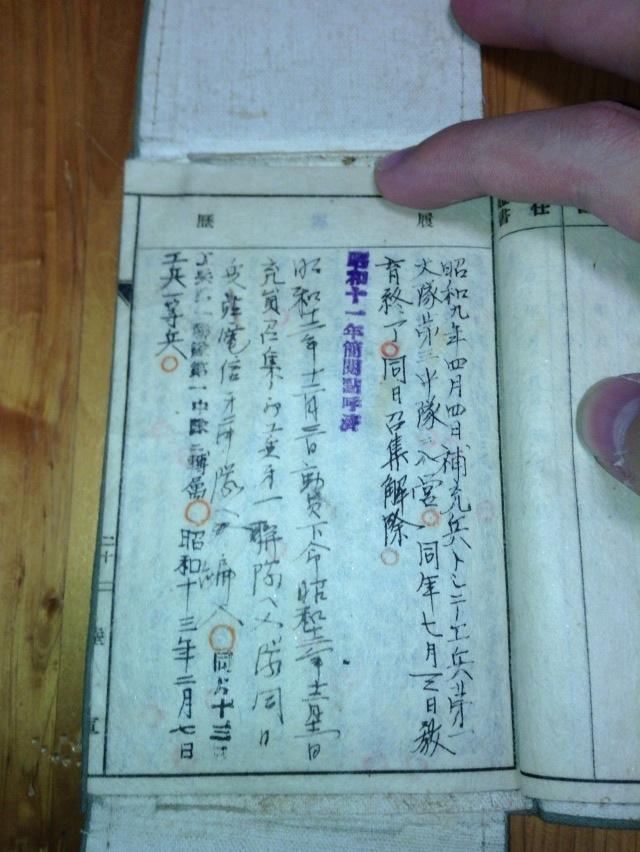 履歴
昭和九年四月四日補充兵トシテ工兵第一
大隊第三中隊ニ入営 同年七月三日教
育終了 同日召集解除
昭和十一年簡閲點呼濟
昭和十二年十二月 日動員下令昭和十二年十二月 日
充員召集 工兵第一聯隊ヘ入隊同日
兵站電信第 中隊ヘ編入 同月十三日
工兵第一聯隊第一中隊ニ轉属 昭和十三年二月七日
工兵一等兵
二十二